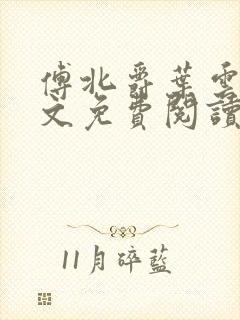 傅北爵葉雲
文免費閱讀
11月碎藍